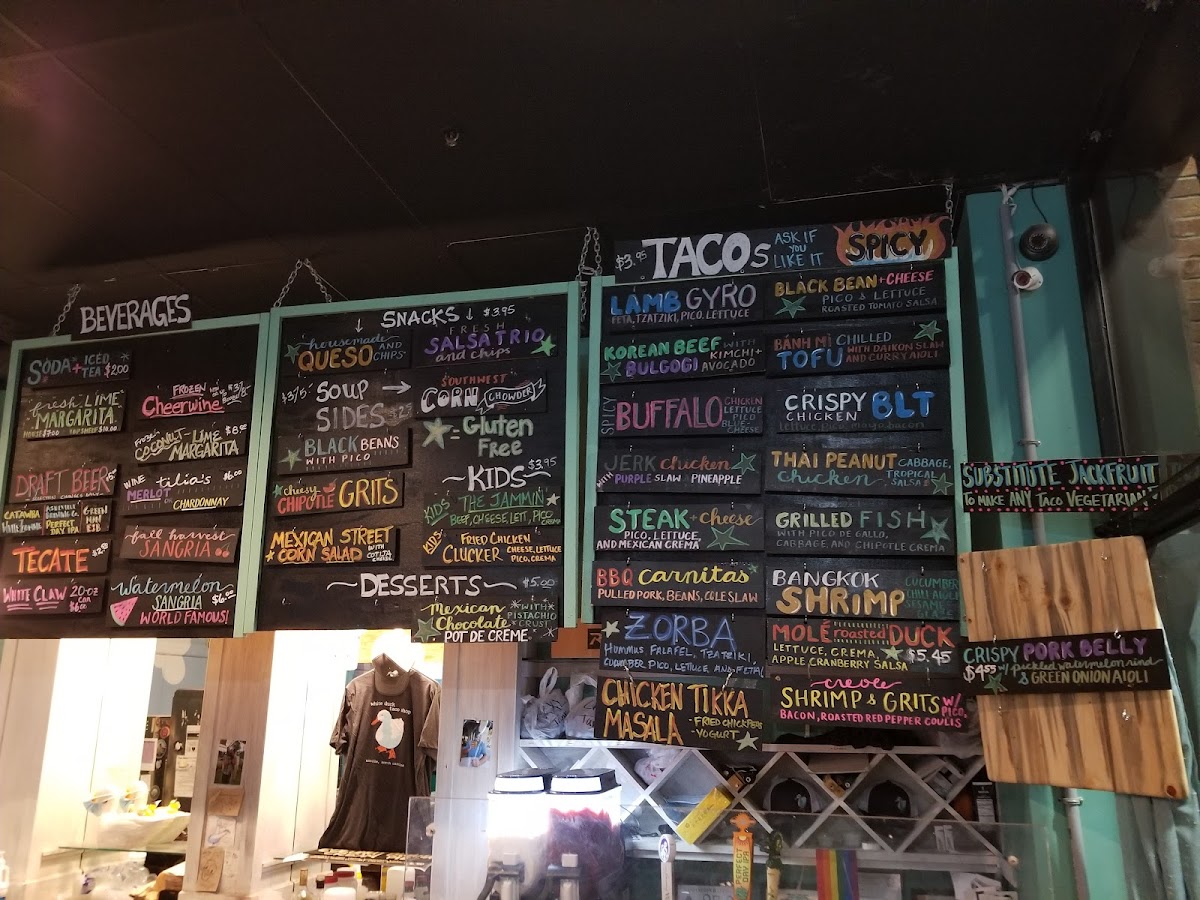 BEVERAGES
SODA + ICED TEA $2.00
fresh LIME
MARGARITA
FROZEN
Cheerwine
Frozen
COCONUT-LIME $8.00
MARGARITA
DRAFT BEER
WINE tilia's $6.00
MERLOT
CHARDONNAY
CATAWBA
PERFECT DAY IPA
GREEN MAN ESB
fall harvest
SANGRIA
TECATE
WHITE CLAW 20oz CAN $6.00
Watermelon
SANGRIA $6.00
WORLD FAMOUS!
↓ SNACKS ↓ $3.95
housemade
QUESO AND CHIPS
FRESH
SALSA TRIO
and chips
$3.75 SOUP →
SIDES
SOUTHWEST
CORN CHOWDER
BLACK BEANS
WITH PICO
- Gluten
Free
cheesy
CHIPOTLE GRITS
~KIDS~ $3.95
KIDS THE JAMMIN
BEEF, CHEESE, LETT, PICO, CREMA
MEXICAN STREET
CORN SALAD WITH COTIJA CHEESE
KIDS FRIED CHICKEN
CLUCKER CHEESE, LETTUCE PICO, CREMA
~DESSERTS~ $5.00
Mexican
Chocolate WITH PISTACHIO CRUST
POT DE CREME
$3.95 TACOS ASK IF YOU LIKE IT SPICY
LAMB GYRO
FETA, TZATZIKI, PICO, LETTUCE
BLACK BEAN + CHEESE
PICO & LETTUCE
ROASTED TOMATO SALSA
KOREAN BEEF WITH
BULGOGI KIMCHI + AVOCADO
BÁNH MÌ CHILLED
TOFU WITH DAIKON SLAW AND CURRY AIOLI
SPICY BUFFALO CHICKEN LETTUCE PICO BLUE-CHEESE
CRISPY
CHICKEN BLT
lettuce, pico, mayo, bacon
JERK chicken
WITH PURPLE SLAW & PINEAPPLE
THAI PEANUT
Chicken CABBAGE, TROPICAL SALSA &
STEAK + cheese
PICO, LETTUCE,
AND MEXICAN CREMA
GRILLED FISH
WITH PICO DE GALLO,
CABBAGE, AND CHIPOTLE CREMA
BBQ carnitas
PULLED PORK, BEANS, COLESLAW
BANGKOK
SHRIMP CUCUMBER CHILI AIOLI SESAME GLAZE
ZORBA
HUMMUS, FALAFEL, TZATZIKI,
CUCUMBER PICO, LETTUCE AND FETA
MOLÉ roasted DUCK
LETTUCE, CREMA, $5.45
APPLE CRANBERRY SALSA
CHICKEN TIKKA
MASALA -FRIED CHICKPEAS
-YOGURT
creole
SHRIMP & GRITS W/ PICO,
BACON, ROASTED RED PEPPER COULIS
SUBSTITUTE JACKFRUIT
TO MAKE ANY TACO VEGETARIAN
CRISPY PORK BELLY
$4.55 w/ pickled watermelon rind
& GREEN ONION AIOLI
white duck
taco shop
PERFECT DAY IPA